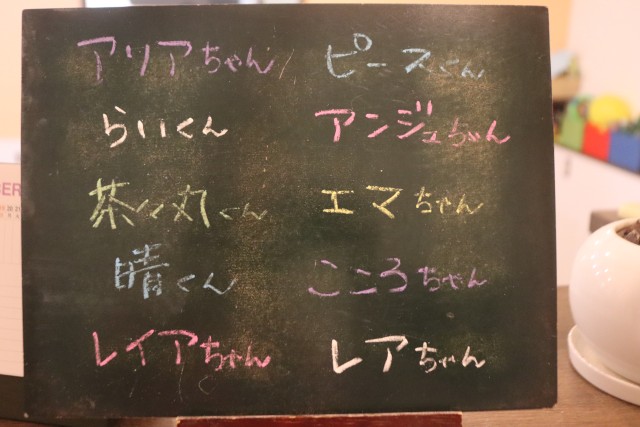 アリアちゃん ピースくん
らいくん アンジュちゃん
茶々丸くん エマちゃん
晴くん こころちゃん
レイアちゃん レアちゃん
BER